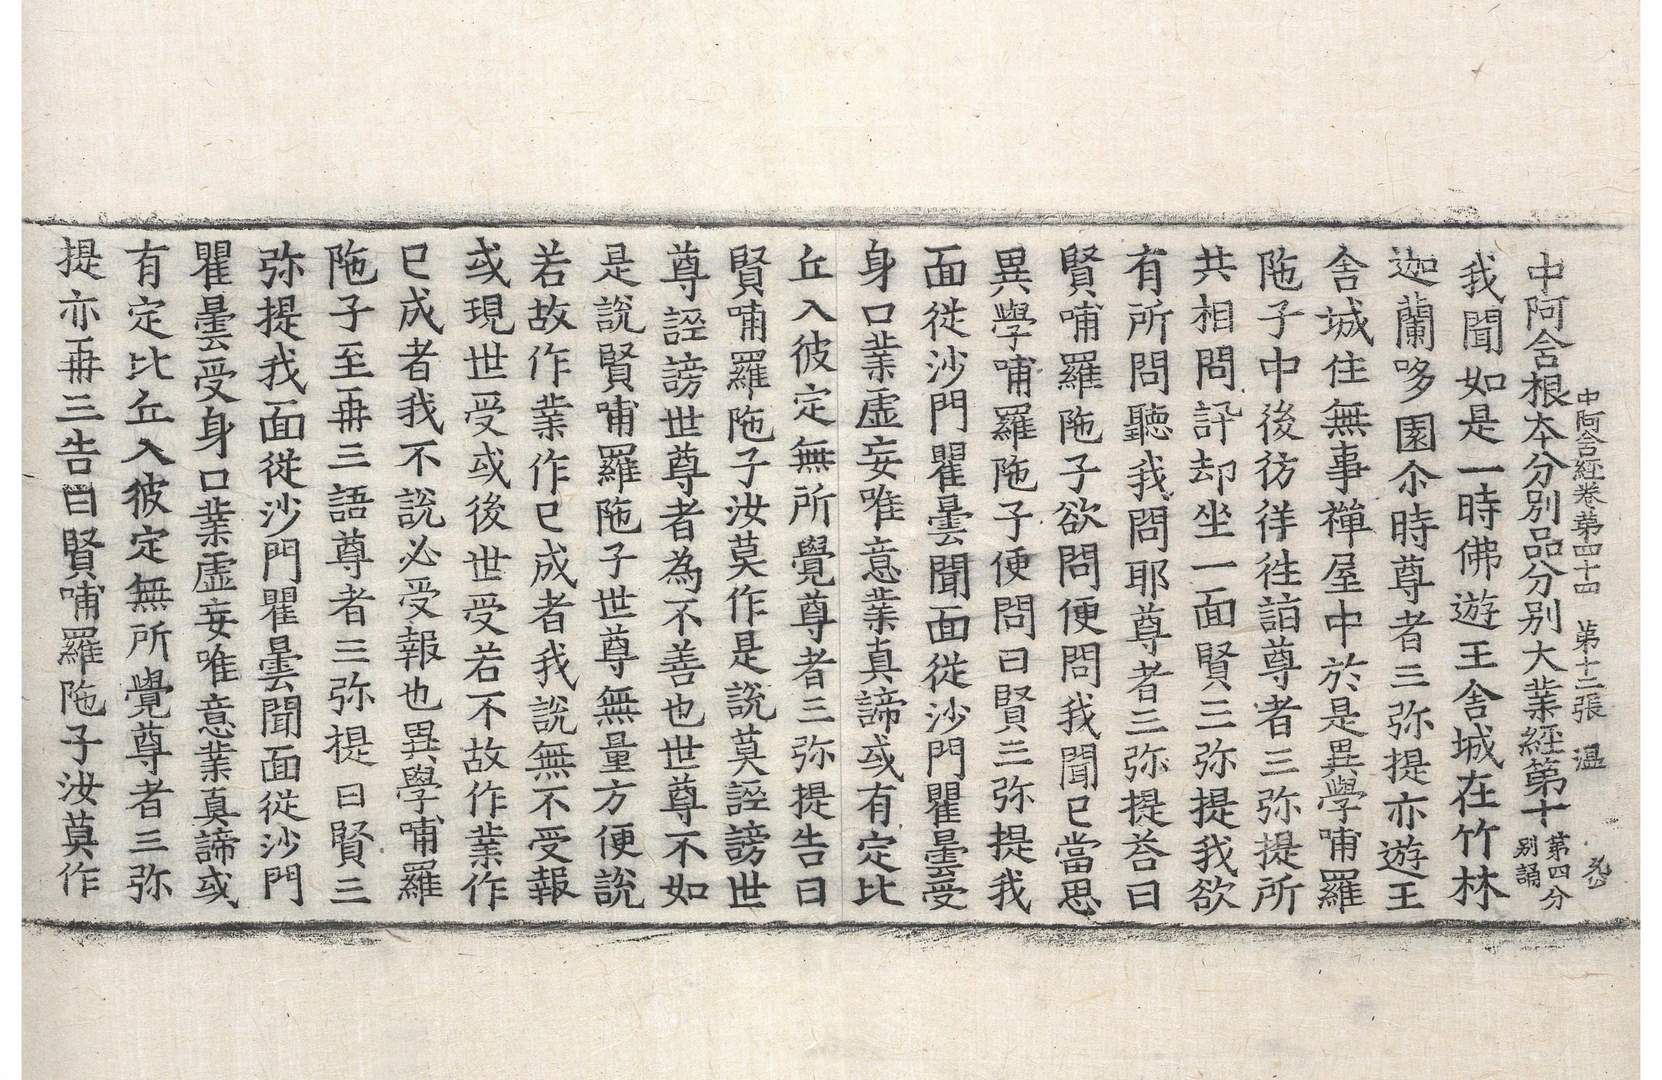 中阿含經卷第四十四　第十三張　温
中阿含根本分別品分別大業經第十 第四分別誦
我聞如是一時佛遊王舍城在竹林
迦蘭哆園尒時尊者三弥提亦遊王
舍城住無事禪屋中於是異學哺羅
陁子中後彷徉往詣尊者三弥提所
共相問訊却坐一面賢三弥提我欲
有所問聽我問耶尊者三弥提荅曰
賢哺羅陁子欲問便問我聞已當思
異學哺羅陁子便問曰賢三弥提我
面從沙門瞿曇聞面從沙門瞿曇受
身口業虛妄唯意業真諦或有定比
丘入彼定無所覺尊者三弥提告曰
賢哺羅陁子汝莫作是說莫誣謗世
尊誣謗世尊者為不善也世尊不如
是說賢哺羅陁子世尊無量方便說
若故作業作已成者我說無不受報
或現世受或後世受若不故作業作
已成者我不說必受報也異學哺羅
陁子至再三語尊者三弥提曰賢三
弥提我面從沙門瞿曇聞面從沙門
瞿曇受身口業虛妄唯意業真諦或
有定比丘入彼定無所覺尊者三弥
提亦再三告曰賢哺羅陁子汝莫作